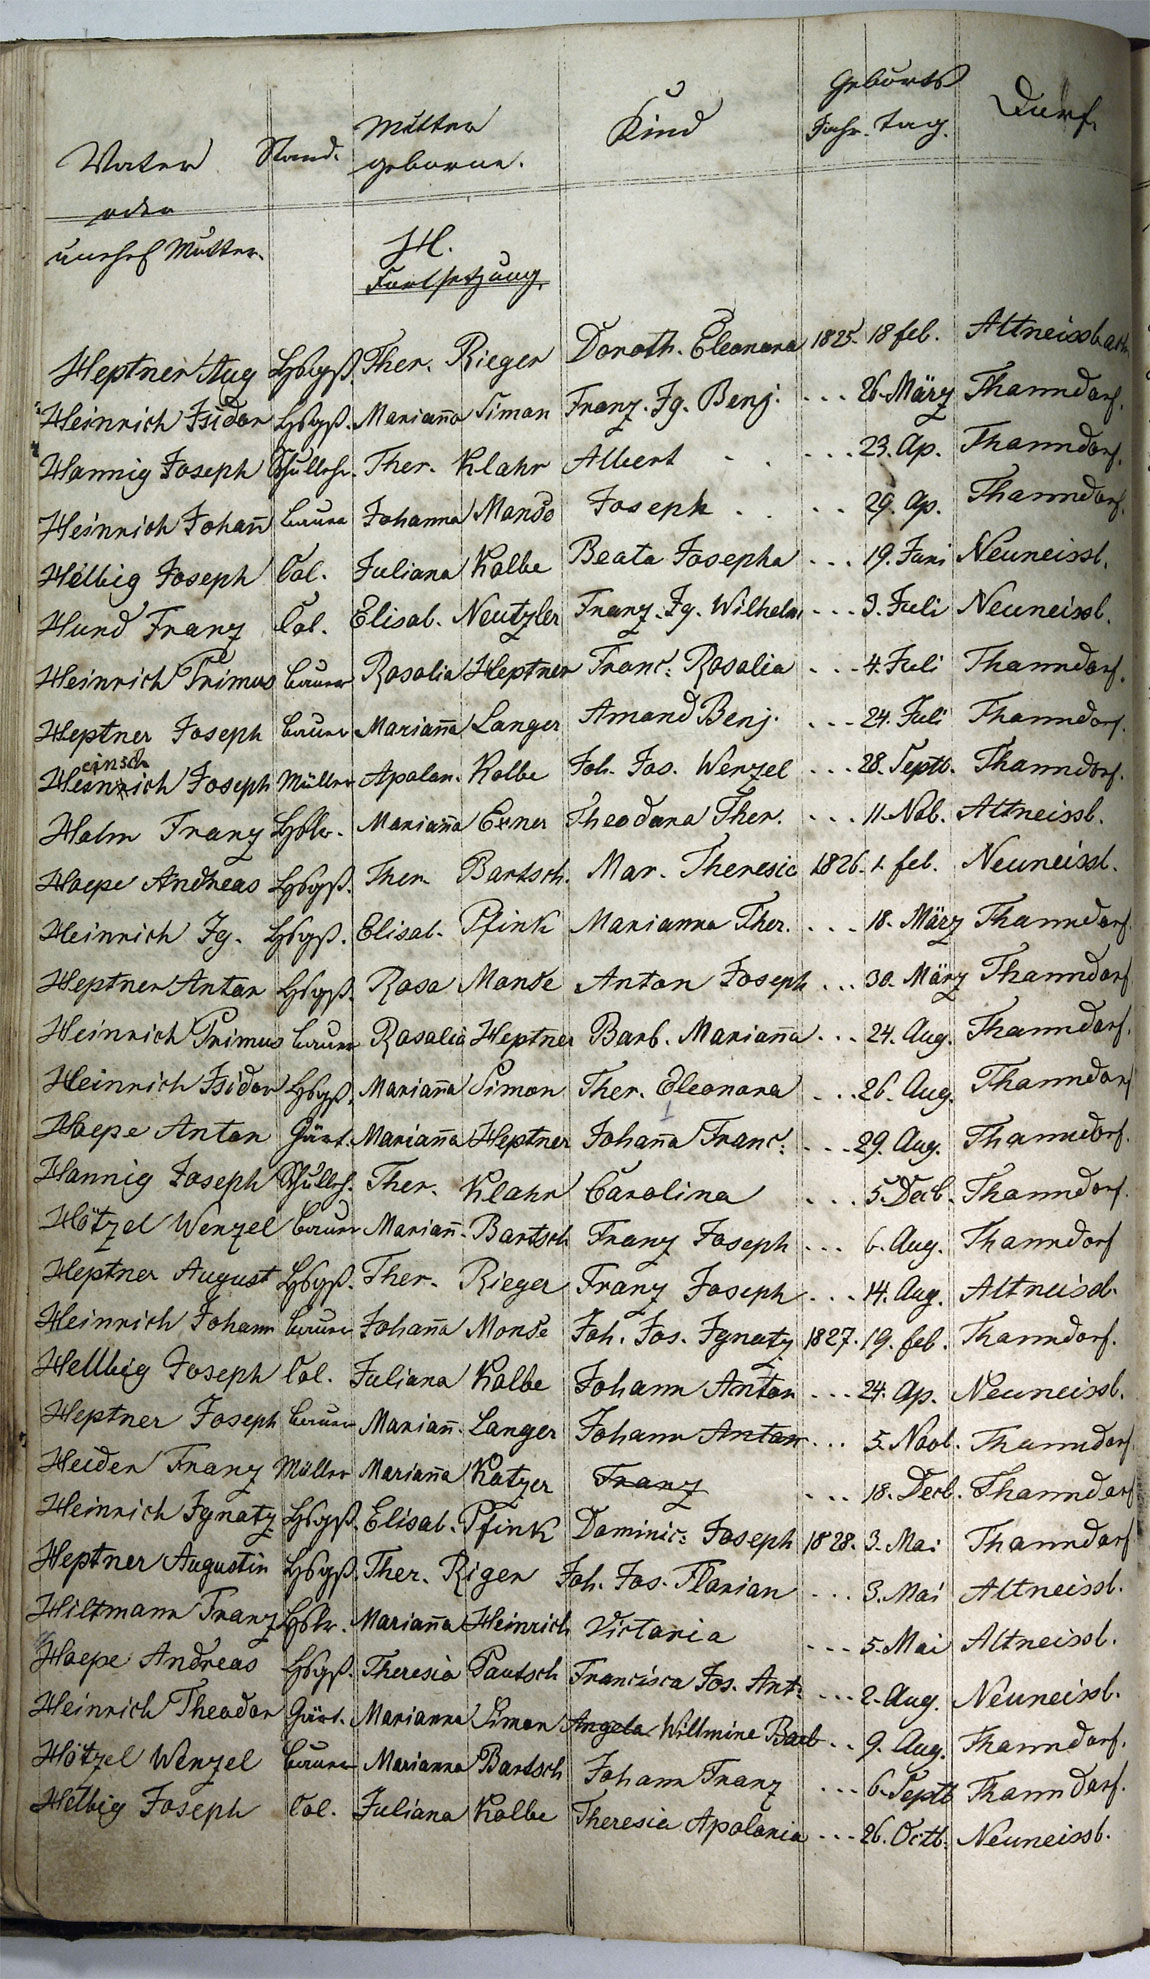 Geburts
Vater Stand. Mutter Kind Jahr. tag. Dorf.
oder geborne.
unehel Mutter.
H.
Fortsetzung.
Heptner Aug Hsbgß. Ther. Rieger Doroth. Eleonora 1825. 18 feb. Altneissbach
Heinrich Isidor Hsbgß. Mariaña Simon Franz. Ig. Benj. . . . 26. März Thanndorf.
Hannig Joseph Schullehr. Ther. Klahr Albert . . . . . 23. Ap. Thanndorf.
Heinrich Johañ bauer Johanna Monse Joseph . . . . 29. Ap. Thanndorf.
Helbig Joseph Col. Juliana Kolbe Beata Josepha . . . 19. Juni Neuneissb.
Hund Franz Col. Elisab. Neutzler Franz. Ig. Wilhelm . . . 3. Juli Neuneissb.
Heinrich Primus bauer Rosalia Heptner Franc: Rosalia . . . 4. Juli Thanndorf.
Heptner Joseph bauer Mariaña Langer Amand Benj. . . . 24. Juli Thanndorf.
einsch
Heinrich Joseph Müller Apolon. Kolbe Joh. Jos. Wenzel . . . 28. Septb. Thanndorf.
Halm Franz Hslr. Mariaña Exner Theodora Ther. . . . 11. Nob. Altneissb.
Hoepe Andreas Hsbgß. Ther. Bartsch. Mar. Theresia 1826. 1. feb. Neuneissb.
Heinrich Ig. Hsbgß. Elisab. Pfink Marianna Ther. . . . 18. März Thanndorf.
Heptner Anton Hsbgß. Rosa Monse Anton Joseph . . . 30. März Thanndorf
Heinrich Primus bauer Rosalia Heptner Barb. Mariaña . . . 24. Aug. Thanndorf.
Heinrich Isidor Hsbgß. Mariaña Simon Ther. Eleonora . . . 26. Aug. Thanndorf
Hoepe Anton Gärt. Mariaña Heptner Johaña Franc: . . . 29. Aug. Thanndorf.
Hannig Joseph Schullehr. Ther. Klahr Carolina . . . 5. Decb. Thanndorf.
Hötzel Wenzel bauer Mariañ. Bartsch Franz Joseph . . . 6. Aug. Thanndorf
Heptner August Hsbgß. Ther. Rieger Franz Joseph . . . 14. Aug. Altneissb.
Heinrich Johann bauer Johaña Monse Joh. Jos. Ignatz 1827. 19. feb. Thanndorf.
Hellbig Joseph Col. Juliana Kolbe Johann Anton . . . 24. Ap. Neuneissb.
Heptner Joseph bauer Mariañ. Langer Johann Anton . . . 5. Novb. Thanndorf.
Heider Franz Müller Mariaña Katzer Franz . . . 18. Decb. Thanndorf
Heinrich Ignatz Hsbgß. Elisab. Pfink Dominic: Joseph 1828. 3. Mai Thanndorf
Heptner Augustin Hsbgß. Ther. Riger Joh. Jos. Florian . . . 3. Mai Altneissb.
Hiltmann Franz Hslr. Mariaña Heinrich Victoria . . . 5. Mai Altneissb.
Hoepe Andreas Hsbgß. Theresia Pautsch Francisca Jos. Ant: . . . 2. Aug. Neuneissb.
Heinrich Theodor Gärt. Marianna Simon Angela Willmine Barb . . 9. Aug. Thanndorf.
Hötzel Wenzel bauer Marianna Bartsch Johann Franz . . . 6. Septb Thanndorf.
Helbig Joseph Col. Juliana Kolbe Theresia Apolonia . . . 26. Octb. Neuneissb.